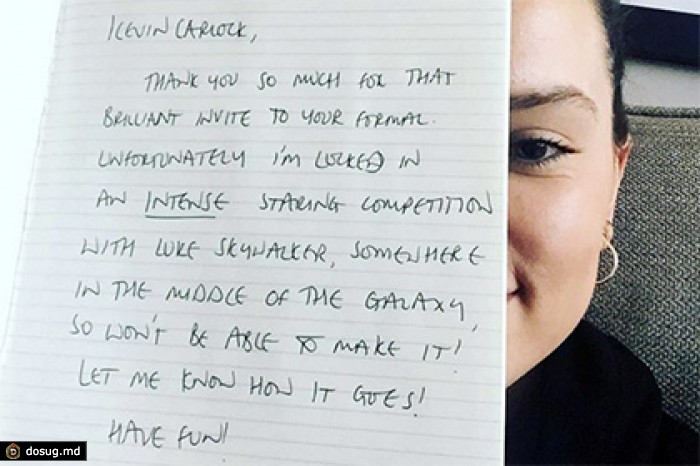 KEVIN CARLOCK,
THANK YOU SO MUCH FOR THAT
BRILLIANT INVITE TO YOUR FORMAL.
UNFORTUNATELY I'M LOCKED IN
AN INTENSE STARING COMPETITION
WITH LUKE SKYWALKER, SOMEWHERE
IN THE MIDDLE OF THE GALAXY,
SO WON'T BE ABLE TO MAKE IT!
LET ME KNOW HOW IT GOES!
HAVE FUN!
dosug.md